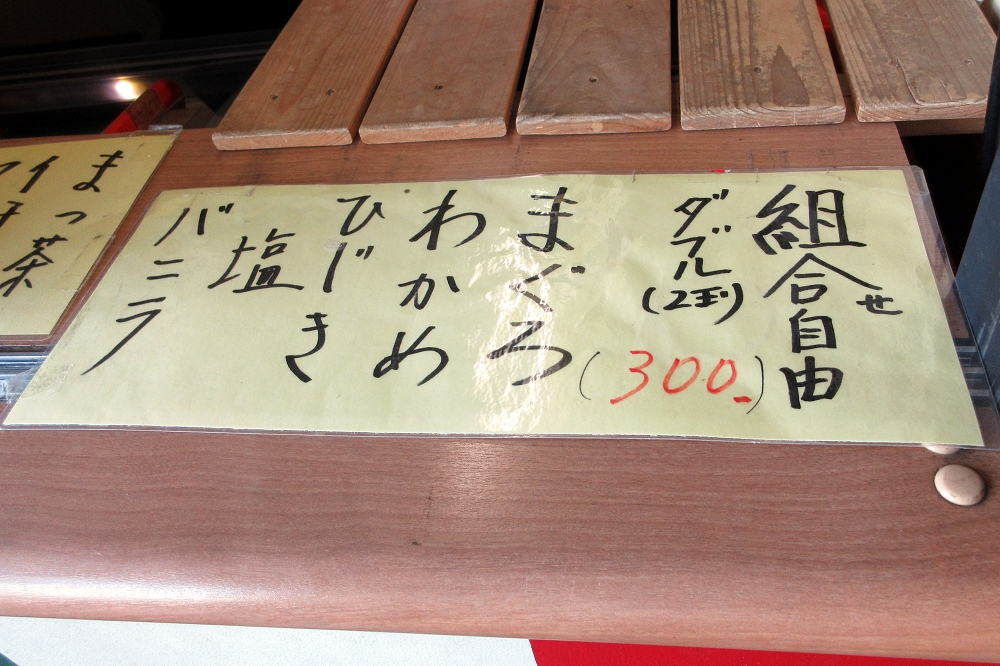 組合せ自由
ダブル(2玉)
(300.-)
まぐろ
わかめ
ひじき
塩
バニラ
まっ茶